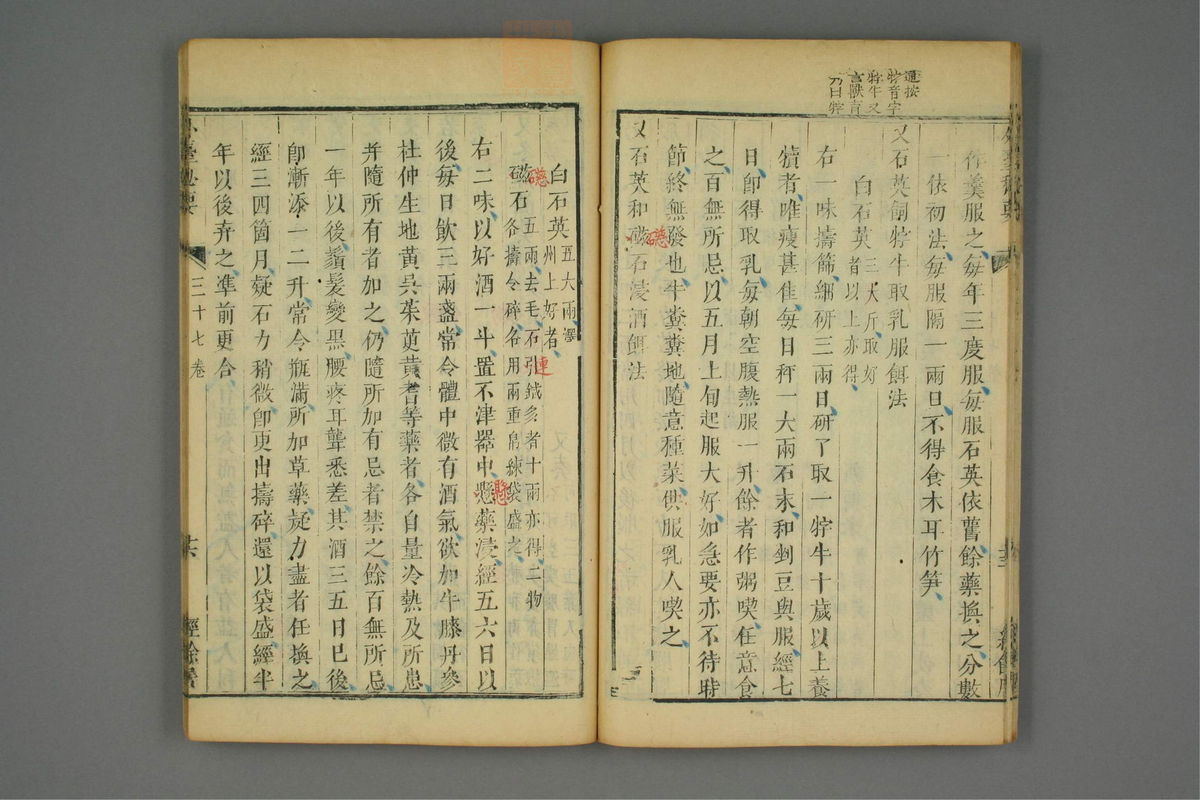 衍按
牸音字
牸牛又
言獸育
乃曰牸
作羹服之每年三度服每服石英依舊餘藥換之分數
一依初法每服隔一兩日不得食木耳竹笋
又石英飼牸牛取乳服餌法
白石英三大斤取好者以上亦得
右一味擣篩細研三兩日研了取一牸牛十歲以上養
犢者唯瘦甚佳每日秤一大兩石末和剉豆與服經七
日即得取乳每朝空腹熱服一升餘者作粥喫任意食
之百無所忌以五月上旬起服大好如急要亦不待時
節終無發也牛糞糞地隨意種菜供服乳人喫之
又石英和磁石浸酒餌法
白石英五大兩澤州上好者
磁石五兩去毛石引鍼多者十兩亦得二物各擣令碎各用兩重帛練袋盛之
右二味以好酒一斗置不津器中懸藥浸經五六日以
後每日飲三兩盞常令體中微有酒氣欲加牛膝丹參
杜仲生地黃吳茱萸黃耆等藥者各自量冷熱及所患
幷隨所有者加之仍隨所加有忌者禁之餘百無所忌
一年以後鬚髮變黑腰疼耳聾悉差其酒三五日已後
即漸添一二升常令瓶滿所加草藥疑力盡者任換之
經三四箇月疑石力稍微即更出擣碎還以袋盛經半
年以後弃之準前更合
外臺秘要
三十七卷
經餘居